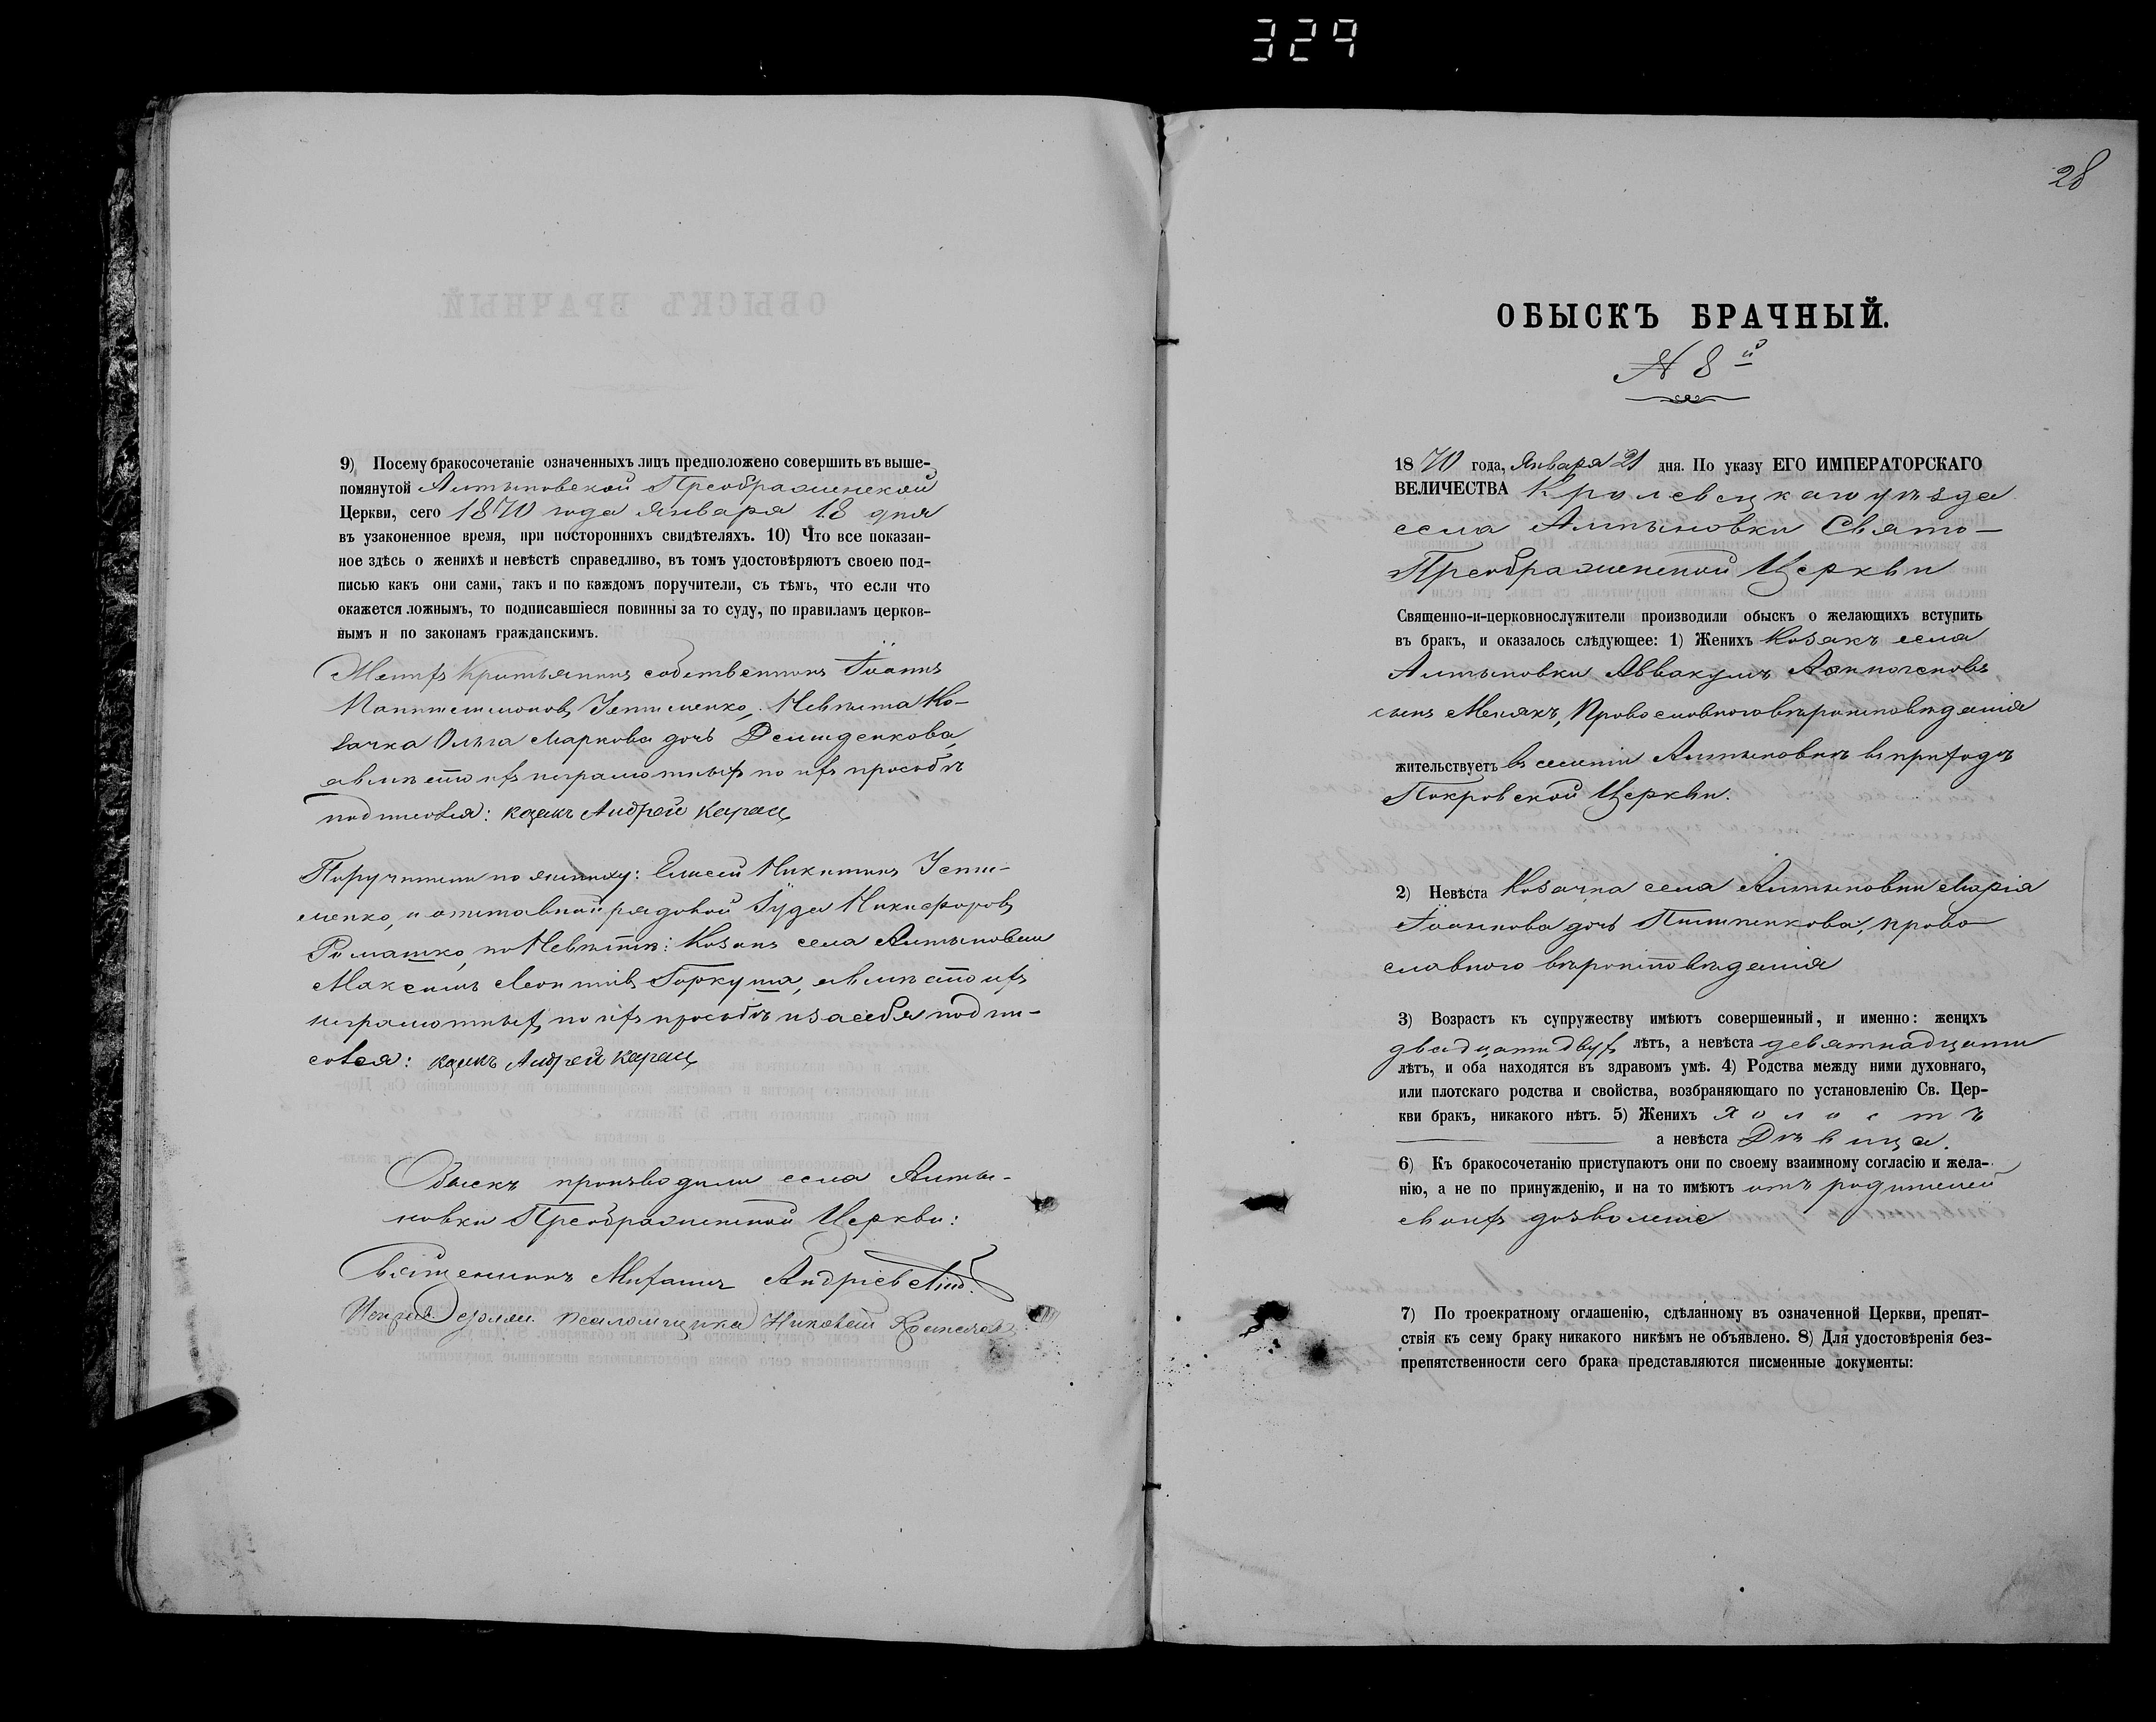 329
9) Посему бракосочетаніе означенныхъ лицъ предположено совершить въ выше-
помянутой Алтыновской Преображенской
Церкви, сего 1870 года Января 18 дня
въ узаконенное время, при постороннихъ свидѣтеляхъ. 10) Что все показан-
ное здѣсь о женихѣ и невѣстѣ справедливо, въ томъ удостовѣряютъ своею под-
писью какъ они сами, такъ и по каждомъ поручители, съ тѣмъ, что если что
окажется ложнымъ, то подписавшіеся повинны за то суду, по правиламъ церков-
нымъ и по законамъ гражданскимъ.
собственникъ Іоаннъ
Невѣста Ко-
зачка Ольга Маркова дочь Демиденкова,
а вмѣсто ихъ неграмотныхъ по ихъ просьбѣ
подписовся: козакъ Андрей
Поручители по жениху: Елисей Никитинъ
и отставной рядовой Іуда Никифоровъ
Ромашко, по Невѣстѣ: Козакъ села Алтыновки
Максимъ Леонтіевъ Горкуша, а вмѣсто ихъ
неграмотныхъ, по ихъ просьбѣ и за себя подпи-
совся: козакъ Андрей
Обыскъ производили села Алты-
новки Преображенской Церкви:
Священникъ Андріевъ
псаломщика Николай
28
ОБЫСКЪ БРАЧНЫЙ.
№ 8й
1870 года, Января 21 дня. По указу ЕГО ИМПЕРАТОРСКАГО
ВЕЛИЧЕСТВА Кролевецкаго уѣзда
села Алтыновки Свято-
Преображенской Церкви
Священно-и-церковнослужители производили обыскъ о желающихъ вступить
въ бракъ, и оказалось слѣдующее: 1) Женихъ Козакъ села
Алтыновки Аввакумъ
сынъ Мекякъ, Провославного вѣроисповѣданія
жительствуетъ въ селеніи Алтыновкѣ въ приходѣ
Покровской Церкви.
2) Невѣста Козачка села Алтыновки Марія
Іоаннова дочь право
славного вѣроисповѣданія
3) Возрастъ къ супружеству имѣютъ совершенный, и именно: женихъ
двадцати двухъ лѣтъ, а невѣста девятнадцати
лѣтъ, и оба находятся въ здравомъ умѣ. 4) Родства между ними духовнаго,
или плотскаго родства и свойства, возбраняющаго по установленію Св. Цер-
кви бракъ, никакого нѣтъ. 5) Женихъ Холостъ
а невѣста Дѣвица.
6) Къ бракосочетанію приступаютъ они по своему взаимному согласію и жела-
нію, а не по принужденію, и на то имѣютъ отъ родителей
своихъ дозволеніе
7) По троекратному оглашенію, сдѣланному въ означенной Церкви, препят-
ствія къ сему браку никакого никѣмъ не объявлено. 8) Для удостовѣренія без-
препятственности сего брака представляются писменные документы: